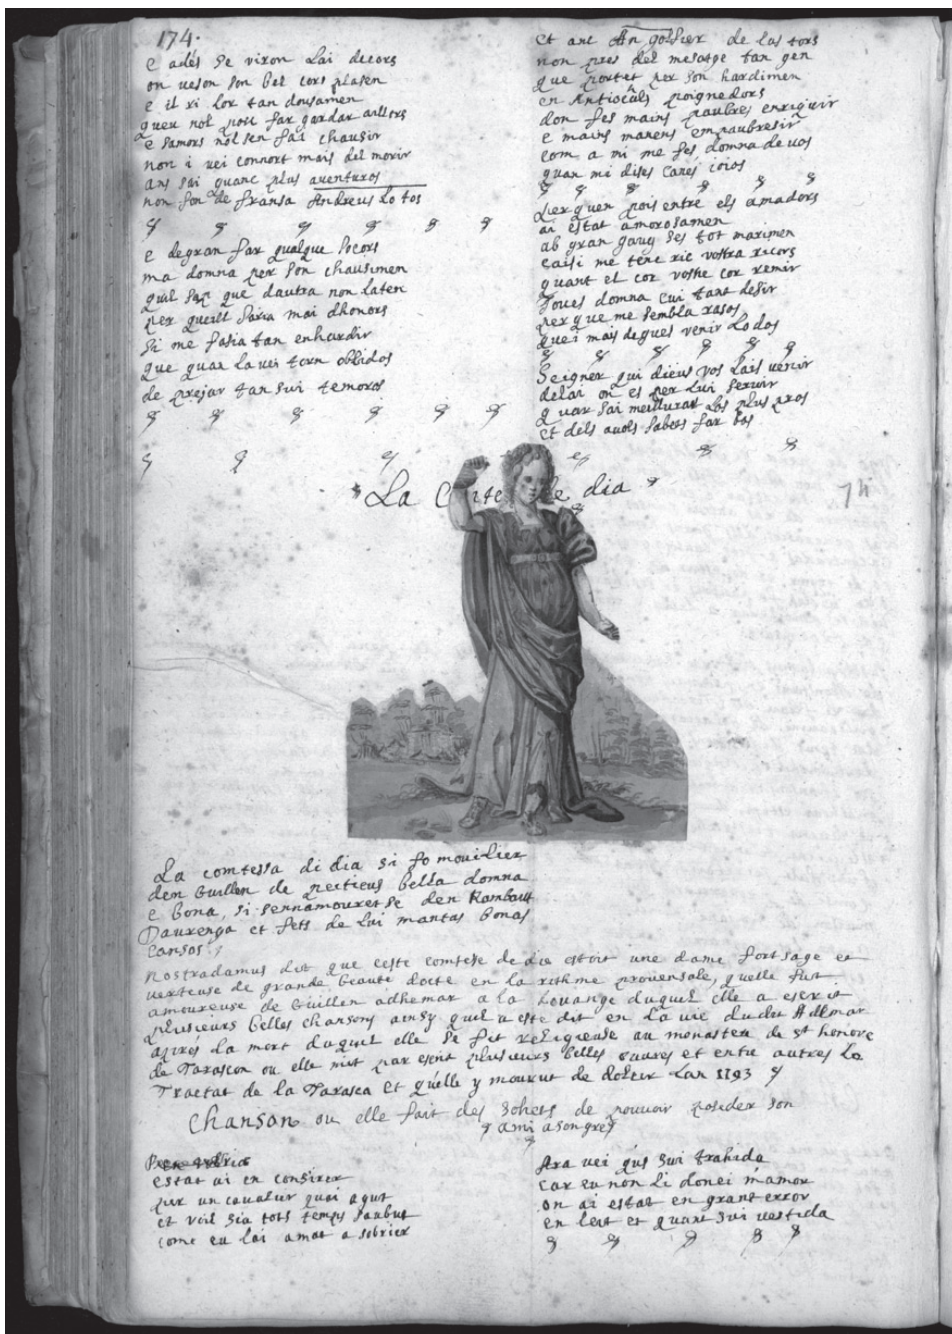 174.
e adés se viron lai decors
on veson son bel cors plasen
e il ri lor tan dousamen
queu nol puis far gardar aillors
e samors nol sen fai chausir
non i vei connort mais del morir
ans sai quanc plus aventuros
non fon de fransa Andreus lo tos
e degran far qualque socors
ma domna per son chausimen
quil sap que dautra non laten
per queill faria mai dhonors
si me fasia tan enhardir
que quan la vei torn oblidos
de prejar tan sui temoros
et anc An golfier de las tors
non pres del mesatge tan gen
que portet per son hardimen
en Antiocha poignedors
don fes mains paubres enriquir
e mains manens empaubresir
com a mi me fes domna de vos
quan mi dises canes joios
per quen pois entre els amadors
ai estat amorosamen
ab gran gaug ses tot marimen
caisi me tenc ric vostra ricors
quant el cor vostre cor remir
domna cui tant desir
per que me sembla rasos
quei mais degues venir lo dos
Seigner qui dieus vos lais venir
delai on es per lui servir
quar sai meilluras los plus pros
et dels avols sabes far bos
La Comte de dia
74
La comtessa di dia si fo mouilier
den Guillen de peitieus bella domna
e bona, si sennamouret se den Rambaut
Daurenga et fets de lui mantas bonas
cansos
Nostradamus dit que ceste comtese de die estoit une dame fort sage et
verteuse de grande beaute docte en la rithme provensale, quelle fut
amoureuse de Guillen adhemar a la louange duquel elle a escrit
plusieurs belles chansons ainsy quil a este dit en la vie dudit Ademar
aprés la mort duquel elle se fit religieuse au monastere de st honore
de Tarascon ou elle mit par escrit plusieurs belles euvres et entre autres le
Tractat de la Tarasca et quelle y mourut de doleur lan 1193
Chanson ou elle fait des sohets de pouvoir poseder son
ami a son gre
estat ai en consirer
per un cavalier quai agut
et voil sia tots temps saubut
come eu lai amat a sobrier
Ara vei qus sui trahida
car eu non li donei mamor
on ai estat en grant error
en leit et quant sui vestida